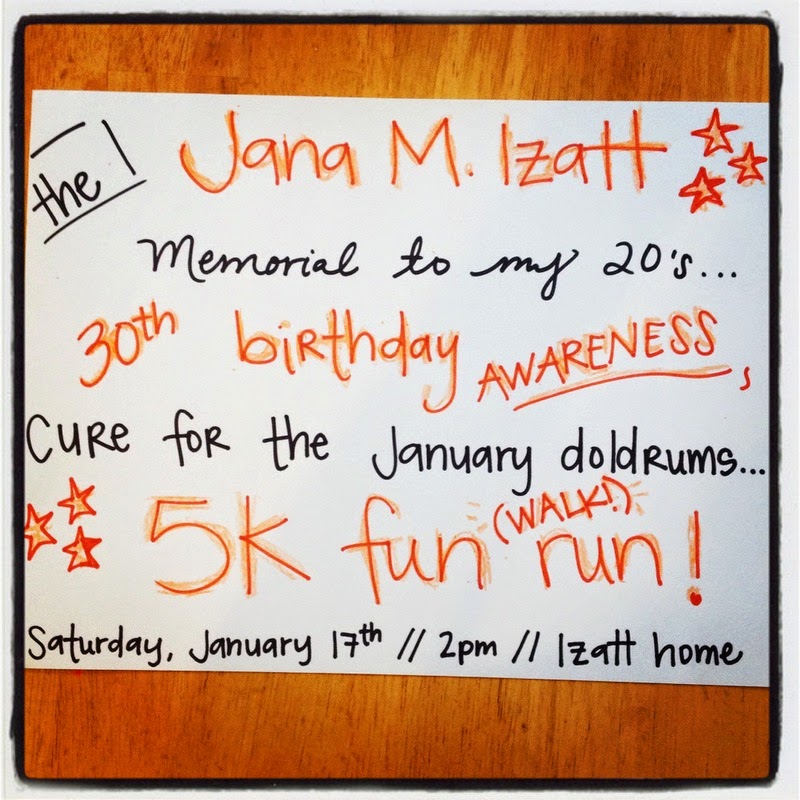 the Jana M. Izatt
Memorial to my 20's...
30th birthday AWARENESS,
CURE for the January doldrums...
5K fun (WALK!) run!
Saturday, January 17th // 2pm // Izatt home